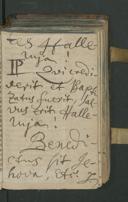 tes Halle
luja!
Qui credi
derit et Bapt
zatus fuerit, sal
vus erit. Halle
luja!
Bened
ctus sit Je
hova,